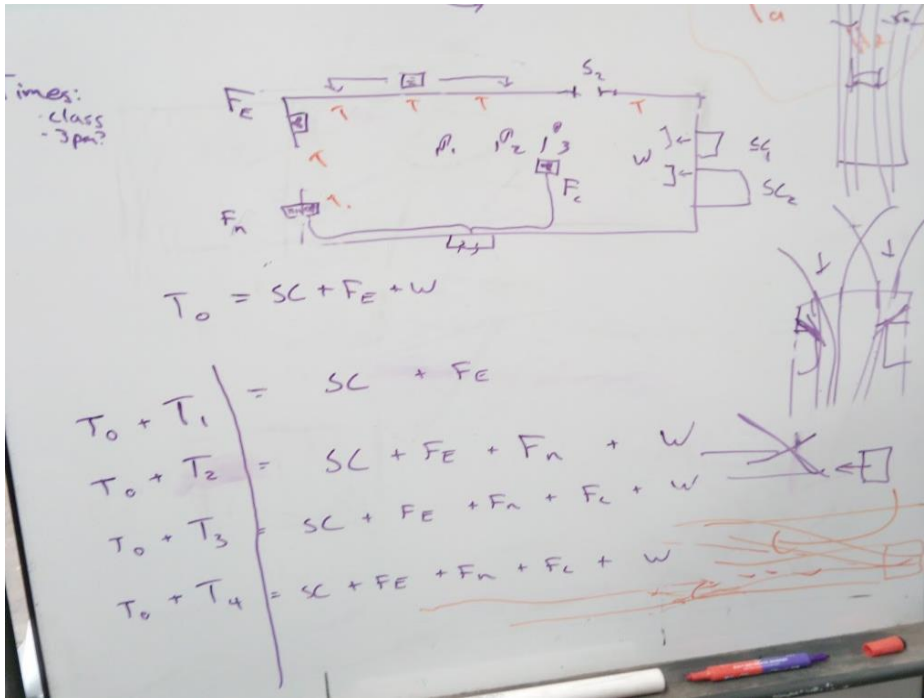 Times:
- class
- 3pm?
Ta
F_E
T T T
S_2
T
T
P_1 P_2 P_3
W
SC_1
F_n
T
F_c
SC_2
T_0 = SC + F_E + W
T_0 + T_1 = SC + F_E
T_0 + T_2 = SC + F_E + F_n + W
T_0 + T_3 = SC + F_E + F_n + F_c + W
T_0 + T_4 = SC + F_E + F_n + F_c + W